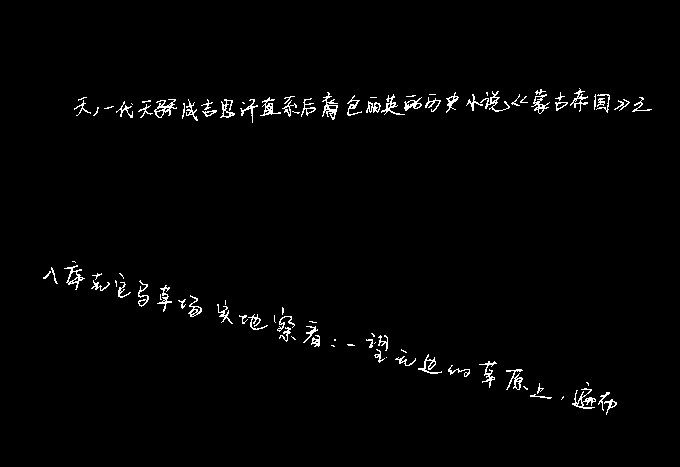 天,一代天骄成吉思汗直系后裔包丽英的历史小说《蒙古帝国》之
入库尧它马草场实地察看:一望无边的草原上,遍布